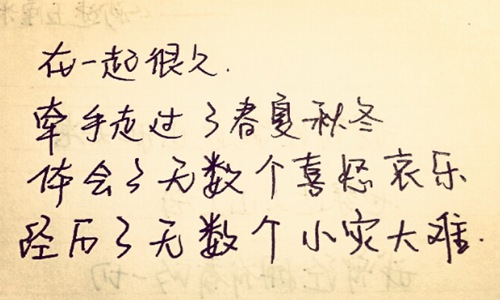 在一起很久.
牵手走过了春夏秋冬
体会了无数个喜怒哀乐
经历了无数个小灾大难.